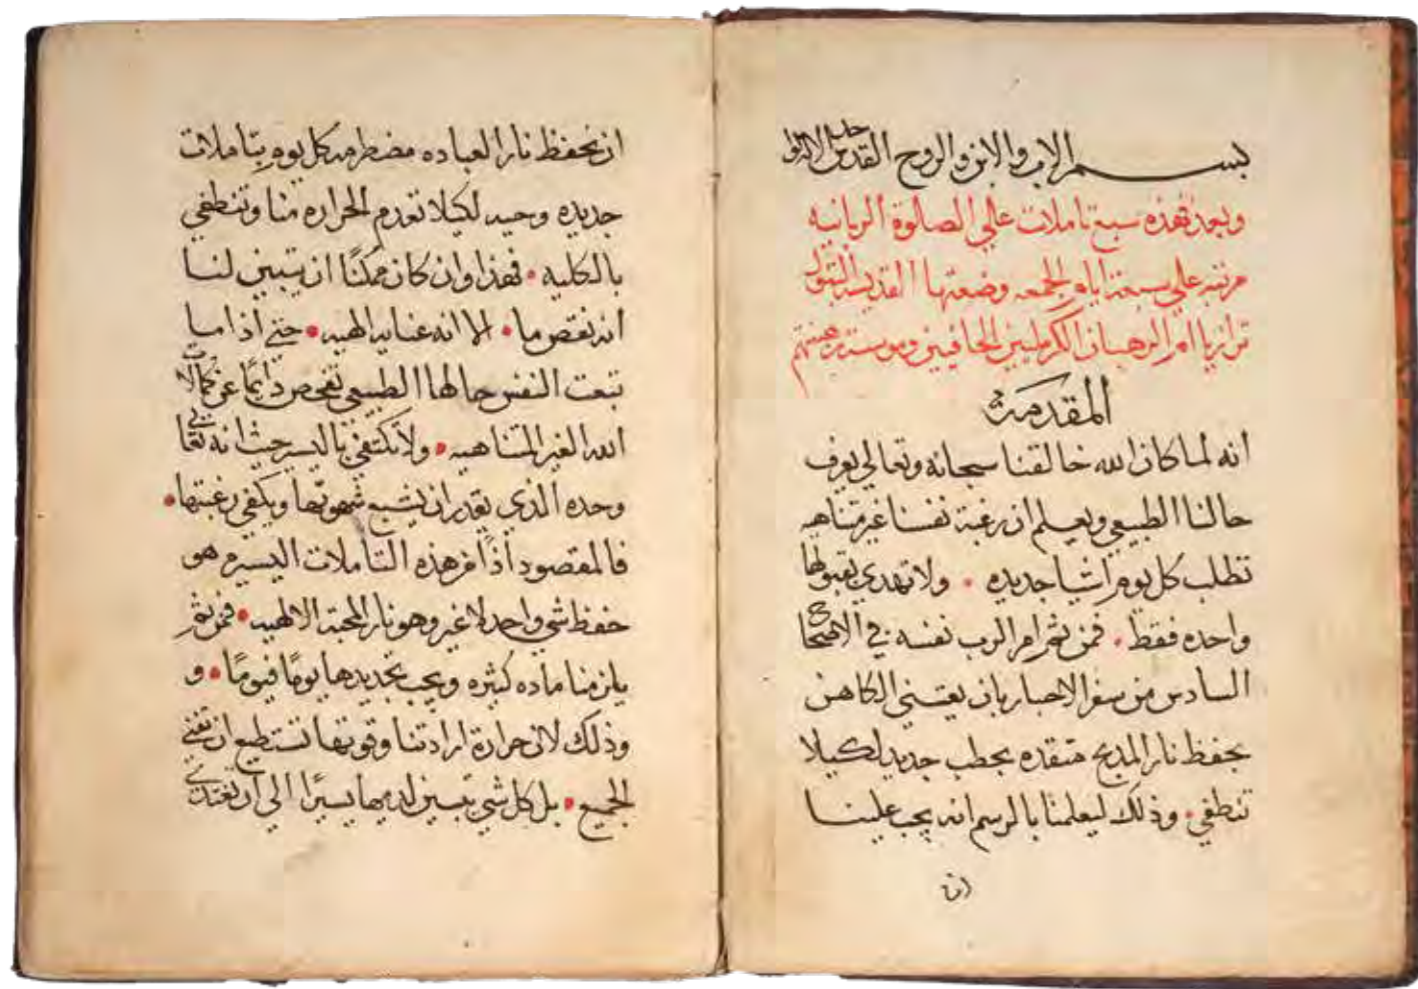 بسم الاب والابن والروح القدس الاله الواحد
وبعد فهذه سبع تاملات علي الصلوة الربانيه
مرتبه علي سبعة ايام الجمعه وضعتها القديسه البتول
ترازيا ام الرهبان الكرمليين الحافيين وموسسة رهبنتهم
المقدمة
انه لما كان الله خالقنا سبحانه وتعالي يعرف
حالنا الطبيعي ويعلم ان رغبة نفسنا غير متناهيه
تطلب كل يوم اشيا جديده • ولا تهدي بقبولها
واحده فقط • فمن ثم امر الرب نفسه في الاصحاح
السادس من سفر الاحبار بان يعتني الكاهن
بحفظ نار المذبح متقده بحطب جديد لكيلا
تنطفي • وذلك ليعلمنا بالرسم انه يجب علينا
ان
ان نحفظ نار العباده مضطرمه كل يوم بتاملات
جديده وحيه لكيلا تعدم الحراره منا وتنطفي
بالكليه • فهذا وان كان ممكنًا ان يتبين لنا
انه نقص ما • الا انه عنايه الهيه • حتي اذا ما
تبعت النفس حالها الطبيعي تفحص دايمًا عن كمالات
الله الغير المتناهيه • ولا تكتفي باليسير حيث انه تعالي
وحده الذي يقدر ان يشبع شهوتها ويكفي رغبتها •
فالمقصود اذًا من هذه التاملات اليسيره هو
حفظ شي واحد لا غير وهو نار المحبة الالهيه • فمن ثم
يلزمنا ماده كثيره ويجب تجديدها يومًا فيومًا • و
وذلك لان حرارة ارادتنا وقوتها تستطيع ان تفني
الجميع • بل كل شي يتبين لديها يسيرًا الي ان تغتدي